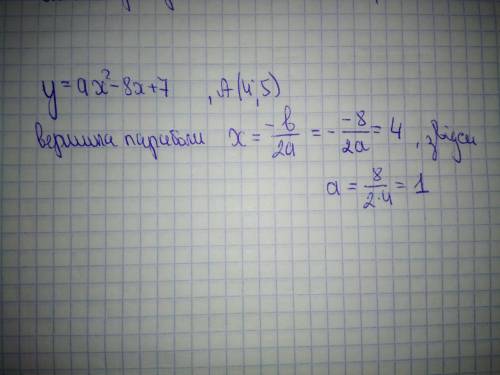 y = ax² - 8x + 7 , A(4;5)
вершина параболи x = -b/2a = - -8/2a = 4 , звідси
a = 8/2·4 = 1